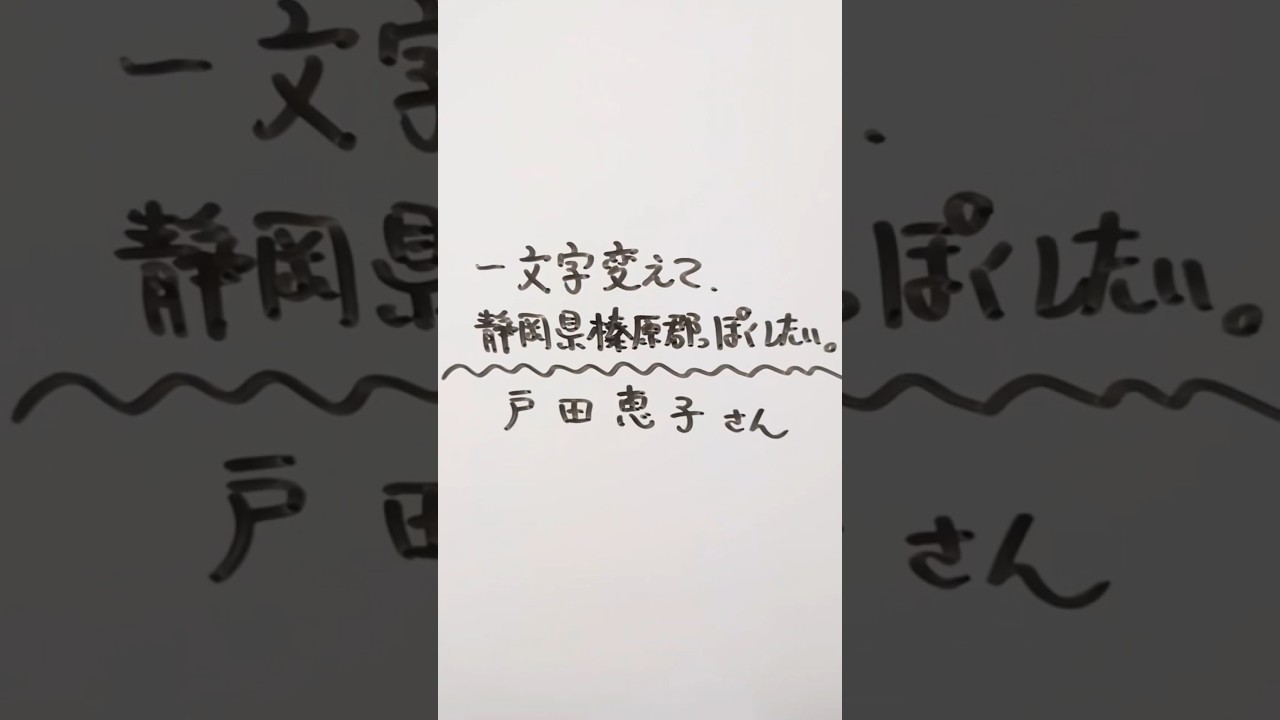 一文字変えて、
静岡県榛原郡っぽくしたい。
戸田恵子さん